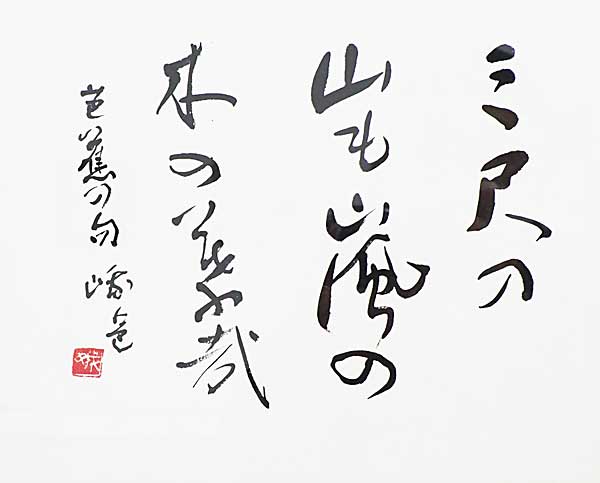 三尺の
山も嵐の
木の葉哉
芭蕉の句 峨邑